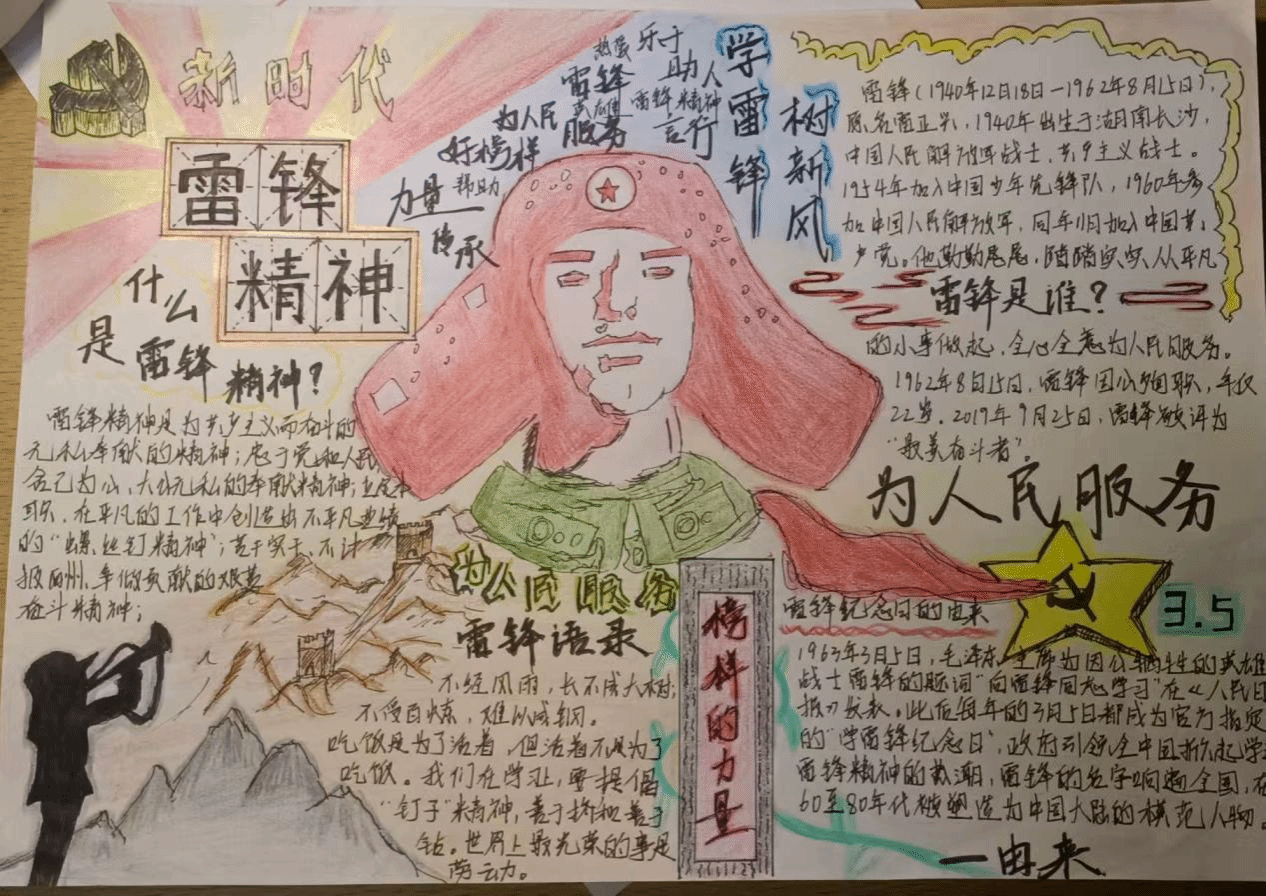 新时代
雷锋
精神
什么
是雷锋精神?
雷锋精神是为共产主义而奋斗的
无私奉献的精神;忠于党和人民
舍己为公、大公无私的奉献精神;立足本
职、在平凡的工作中创造出不平凡业绩
的“螺丝钉精神”;苦干实干、不计
报酬、争做贡献的艰苦
奋斗精神;
热爱
乐于
助人
雷锋
雷锋精神
英雄
言行
为人民
服务
好榜样
力量
帮助
传承
学雷锋
树新风
雷锋(1940年12月18日—1962年8月15日),
原名雷正兴,1940年出生于湖南长沙,
中国人民解放军战士,共产主义战士。
1954年加入中国少年先锋队,1960年参
加中国人民解放军,同年11月加入中国共
产党。他勤勤恳恳,踏踏实实,从平凡
雷锋是谁?
的小事做起,全心全意为人民服务。
1962年8月15日,雷锋因公殉职,年仅
22岁。2019年9月25日,雷锋被评为
“最美奋斗者”。
为人民服务
为人民服务
雷锋语录
不经风雨,长不成大树;
不受百炼,难以成钢。
吃饭是为了活着,但活着不是为了
吃饭。我们在学习上,要提倡
“钉子”精神,善于挤和善于
钻。世界上最光荣的事是
劳动。
榜样的力量
雷锋纪念日的由来
3.5
1963年3月5日,毛泽东主席为因公牺牲的英雄
战士雷锋的题词“向雷锋同志学习”在《人民日
报》发表。此后每年的3月5日都成为官方指定
的“学雷锋纪念日”,政府引领全中国掀起学
雷锋精神的热潮,雷锋的名字响遍全国,在
60至80年代被塑造为中国大陆的模范人物。
一由来